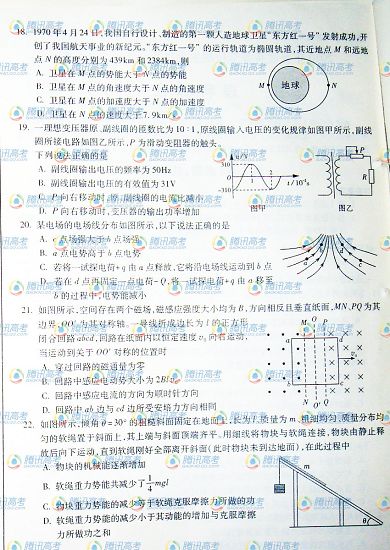 18. 1970年4月24日,我国自行设计、制造的第一颗人造地球卫星"东方红一号"发射成功,开
创了我国航天事业的新纪元。"东方红一号"的运行轨道为椭圆轨道,其近地点M和远地
点N的高度分别为439km和2384km,则
A. 卫星在M点的势能大于N点的势能
B. 卫星在M点的角速度大于N点的角速度
C. 卫星在M点的加速度大于N点的加速度
D. 卫星在N点的速度大于7.9km/s
M 地球 N
19. 一理想变压器原、副线圈的匝数比为10:1,原线圈输入电压的变化规律如图甲所示,副线
圈所接电路如图乙所示,P为滑动变阻器的触头。
下列说法正确的是
A. 副线圈输出电压的频率为50Hz
B. 副线圈输出电压的有效值为31V
C. P向右移动时,原、副线圈的电流比减小
D. P向右移动时,变压器的输出功率增加
u/V
310
-310
P
R
图甲 图乙
20. 某电场的电场线分布如图所示,以下说法正确的是
A. c点场强大于b点场强
B. a点电势高于b点电势
C. 若将一试探电荷+q由a点释放,它将沿电场线运动到b点
D. 若在d点再固定一点电荷-Q,将一试探电荷+q由a移至
b的过程中,电势能减小
21. 如图所示,空间存在两个磁场,磁感应强度大小均为B,方向相反且垂直纸面,MN、PQ为其
边界,OO′为其对称轴。一导线折成边长为l的正方形
闭合回路abcd,回路在纸面内以恒定速度v₀向右运动,
当运动到关于OO′对称的位置时
A. 穿过回路的磁通量为零
B. 回路中感应电动势大小为2Blv₀
C. 回路中感应电流的方向为顺时针方向
D. 回路中ab边与cd边所受安培力方向相同
22. 如图所示,倾角θ=30°的粗糙斜面固定在地面上,长为l、质量为m、粗细均匀、质量分布均
匀的软绳置于斜面上,其上端与斜面顶端齐平。用细线将物块与软绳连接,物块由静止释
放后向下运动,直到软绳刚好全部离开斜面(此时物块未到达地面),在此过程中
A. 物块的机械能逐渐增加
B. 软绳重力势能共减少了1/4mgl
C. 物块重力势能的减少等于软绳克服摩擦力所做的功
D. 软绳重力势能的减少小于其动能的增加与克服摩擦
力所做功之和
m
θ